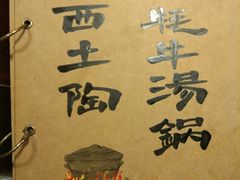 牦牛湯鍋
西土陶